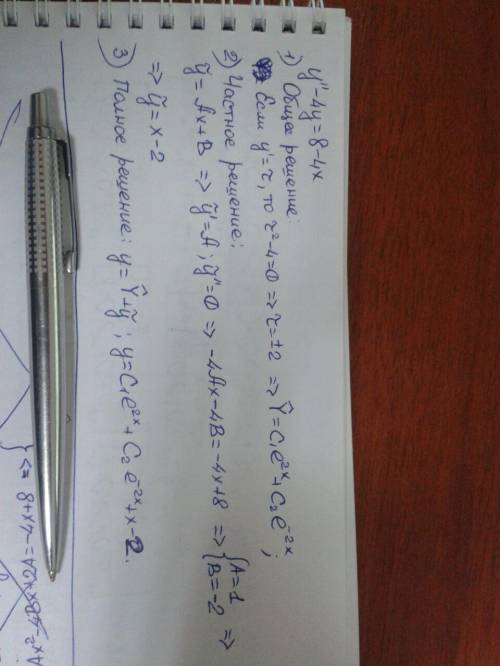 y''-4y=8-4x
1) Общее решение:
Если y'=τ, то τ²-4=0 => τ=±2 => Ŷ=C₁e^{2x}+C₂e^{-2x};
2) Частное решение:
ỹ=Ax+B => ỹ'=A; ỹ''=0 => -4Ax-4B=-4x+8 => {A=1 {B=-2 =>
=> ỹ=x-2
3) Полное решение: y=Ŷ+ỹ; y=C₁e^{2x}+C₂e^{-2x}+x-2.